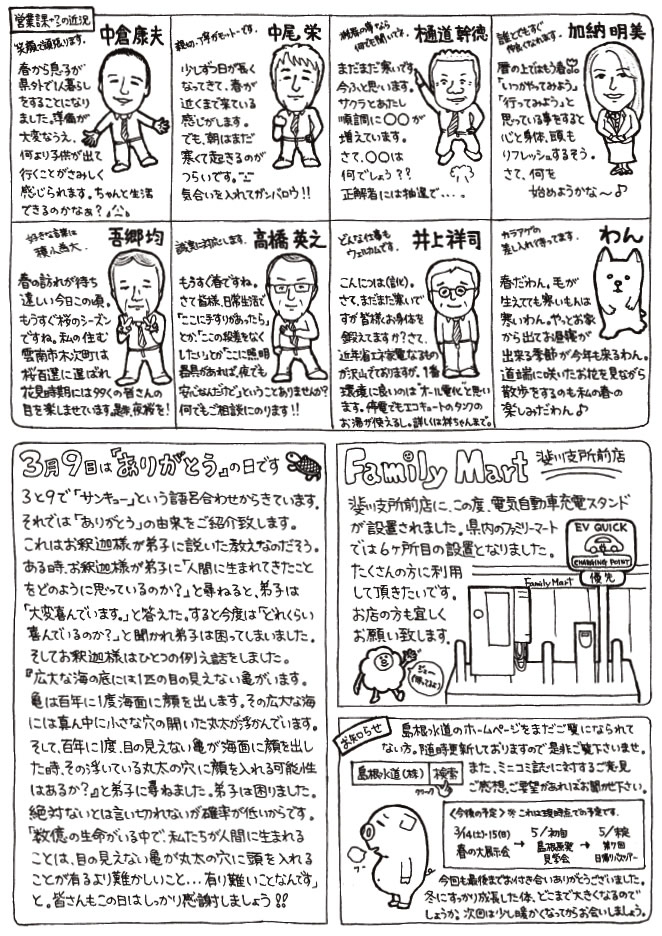 営業課+αの近況
笑顔で頑張ります。
中倉康夫
春から息子が
県外で1人暮らし
をすることになり
ました。準備が
大変なうえ、
何より子供が出て
行くことがさみしく
感じられます。ちゃんと生活
できるのかなぁ？
親切、丁寧がモットーです。
中尾 栄
少しずつ日が長く
なってきて、春が
近くまで来ている
感じがします。
でも、朝はまだ
寒くて起きるのが
つらいです。
気合いを入れてガンバロウ！！
何でも聞いて下さい。
樋道幹徳
まだまだ寒いです。
今ふと思います。
サクラとあたし
順調に〇〇が
増えています。
さて、〇〇は
何でしょう？？
正解者には抽選で…。
誰とでもすぐ
仲良くなれます。
加納明美
暦の上ではもう春
「いつかやってみよう」
「行ってみよう」と
思っている事をすると
心と身体、頭も
リフレッシュするそう。
さて、何を
始めようかな～♪
好きな言葉は
積小為大。
吾郷 均
春の訪れが待ち
遠しい今日この頃。
もうすぐ桜のシーズン
ですね。私の住む
雲南市木次町は
桜百選に選ばれ
花見時期には多くの皆さんの
目を楽しませています。是非、夜桜を！
誠実に対応します。
高橋英之
もうすぐ春ですね。
さて皆様、日常生活で
「ここに手すりがあったら」
とか、「ここの段差をなく
したい」とか「ここに照明
器具があれば、夜でも
安心なんだ」ということありませんか？
何でもご相談にのります！！
どんな仕事も
ウェルカムです。
井上祥司
こんにちは(笑)。
さて、まだまだ寒いで
すが皆様お身体を
鍛えてますか？さて、
近年省エネ家電なるもの
が沢山でておりますが、1番
環境に良いのは"オール電化"と思い
ます。停電でもエコキュートのタンクの
お湯が使えるし。詳しくは祥ちゃんまで。
カラアゲの
差し入れ待ってます。
わん
春だわん。毛が
生えても寒いもんは
寒いわん。やっとお家
から出てお昼寝が
出来る季節が今年も来るわん。
道端に咲いたお花を見ながら
散歩をするのも私の春の
楽しみだわん♪
3月9日は『ありがとう』の日です
3と9で「サンキュー」という語呂合わせからきています。
それでは「ありがとう」の由来をご紹介致します。
これはお釈迦様が弟子に説いた教えなのだそう。
ある時、お釈迦様が弟子に「人間に生まれてきたこと
をどのように思っているのか？」と尋ねると、弟子は
「大変喜んでいます。」と答えた。すると今度は「どれくらい
喜んでいるのか？」と聞かれ弟子は困ってしまいました。
そしてお釈迦様はひとつの例え話をしました。
『広大な海の底には1匹の目の見えない亀がいます。
亀は百年に1度海面に顔を出します。その広大な海
には真ん中に小さな穴の開いた丸太が浮かんでいます。
そして、百年に1度、目の見えない亀が海面に顔を出し
た時、その浮いている丸太の穴に顔を入れる可能性
はあるか？』と弟子に尋ねました。弟子は困りました。
絶対ないとは言い切れないが確率が低いからです。
「数億の生命がいる中で、私たちが人間に生まれる
ことは、目の見えない亀が丸太の穴に頭を入れる
ことが有るより難かしいこと…有り難いことなんです」
と。皆さんもこの日はしっかり感謝しましょう！！
Family Mart 斐川支所前店
斐川支所前店に、この度、電気自動車充電スタンド
が設置されました。県内のファミリーマート
では6ヶ所目の設置となりました。
たくさんの方に利用
して頂きたいです。
お店の方も宜しく
お願い致します。
EV QUICK
CHARGING POINT
優先
Family Mart
お知らせ
島根水道のホームページをまだご覧になられて
ない方。随時更新しておりますので是非ご覧下さいませ。
島根水道(株) 検索
クリーック
また、ミニコミ誌に対するご意見
ご感想、ご要望があればお聞かせ下さい。
〈今後の予定〉※これは現時点での予定です。
3/14(土)・15(日)
春の大展示会
→
5/初旬
島根原発
見学会
→
5/末定
第7回
日帰りバスツアー
今回も最後までお付き合いありがとうございました。
冬にすっかり成長した体、どこまで大きくなるので
しょうか。次回は少し暖かくなってからお会いしましょう。